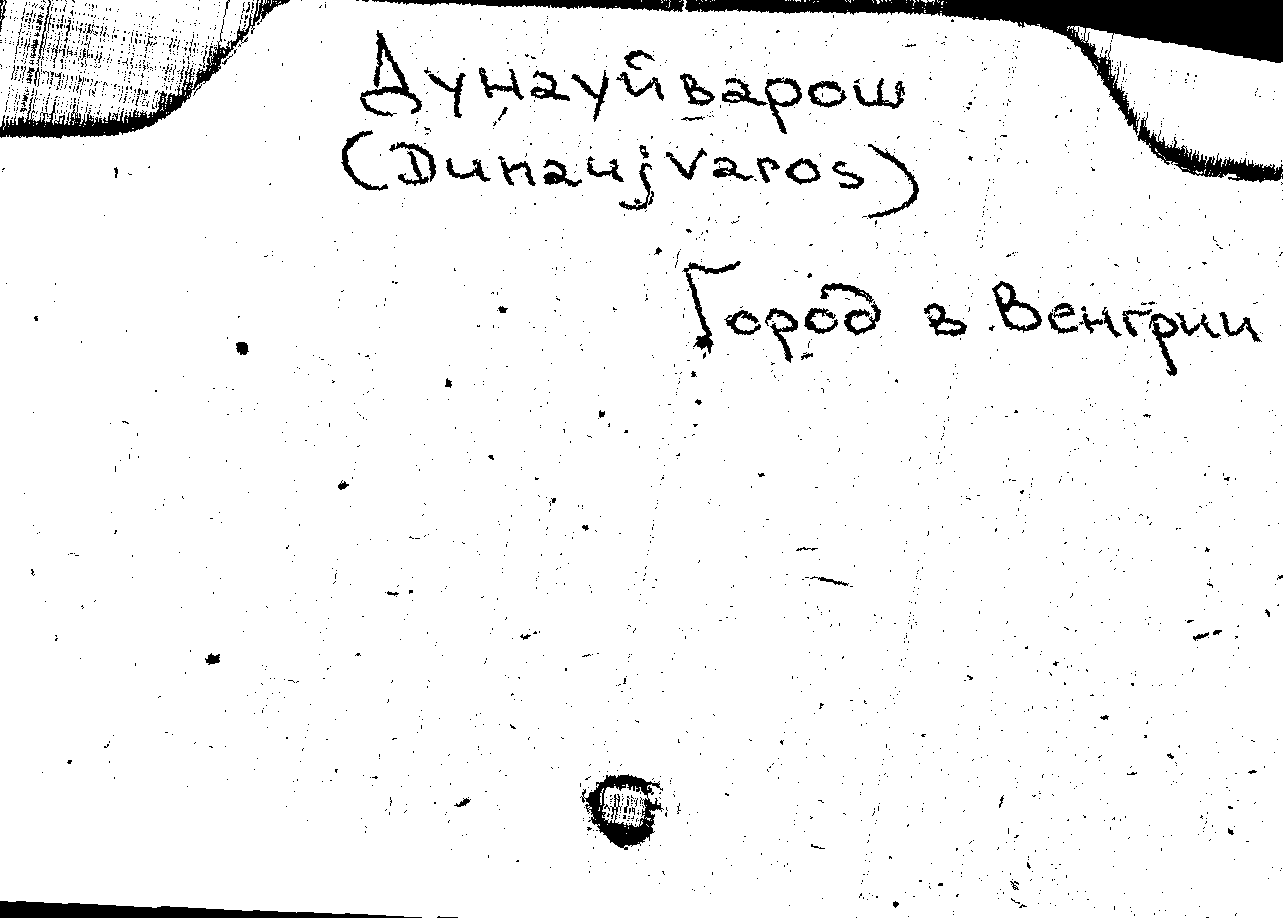 Дунауйварош
(Dunaujvaros)
Город в Венгрии